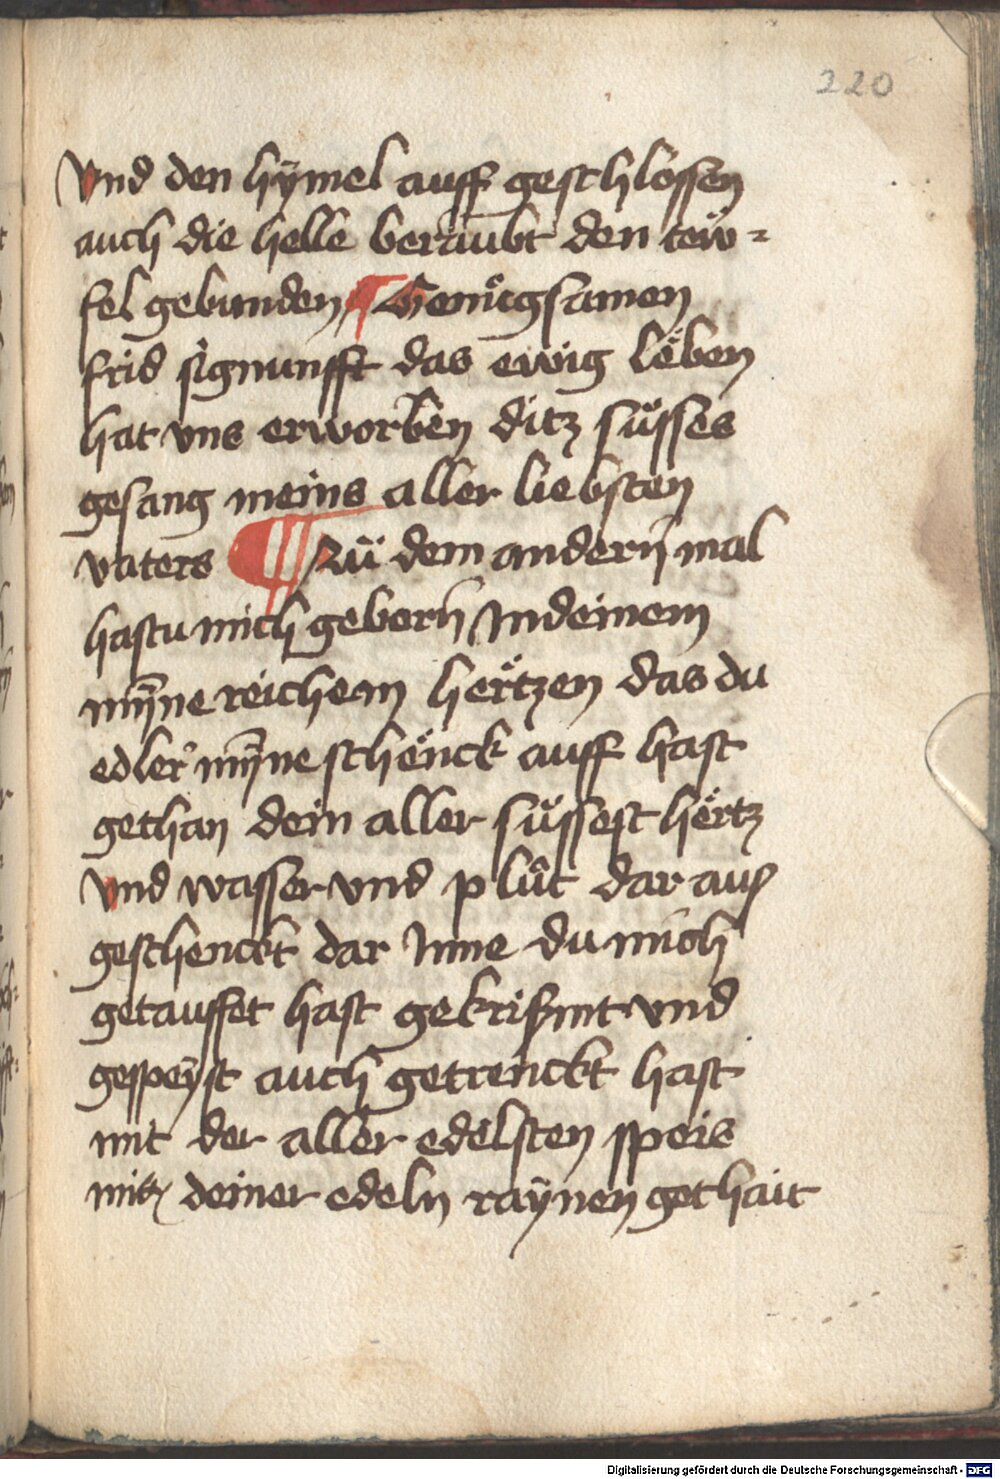 220
vnd den hÿmel auff geschlossen
auch die helle beraubt den tew=
fel gebunden ¶ Genůgsamen
frid signunfft das ewig lëben
hat vns erworben ditz sůsses
gesang meins aller liebsten
vaters ¶ Zů dem andern mal
hastu mich geborn Jn deinem
mÿ̄ne reichem hërtzen das du
edler mÿ̄ne schënck auff hast
gethan dein aller sůssest hërtz
vnd wasser vnd plůt dar auß
geschenckt dar Jnne du mich
getauffet hast gekrismt vnd
gespeÿst auch getrenckt hast
mit der aller edelsten speis
mit deiner edeln raÿnen gothait
Digitalisierung gefördert durch die Deutsche Forschungsgemeinschaft - DFG